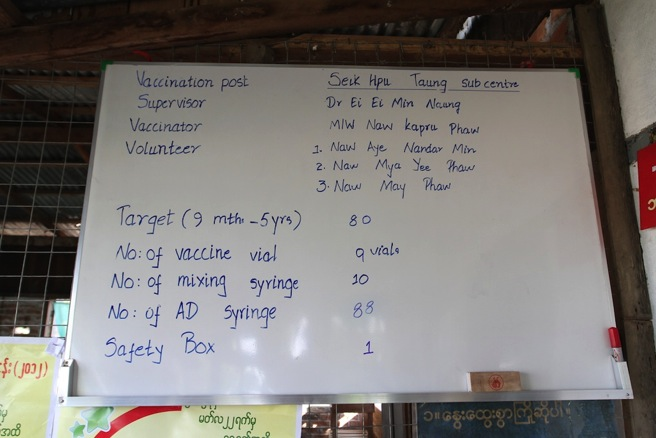 Vaccination post Seik Hpu Taung subcentre
Supervisor Dr Ei Ei Min Naung
Vaccinator MIW Naw Kapru Phaw
Volunteer 1. Naw Aye Nandar Min
2. Naw Mya Yee Phaw
3. Naw May Phaw
Target (9 mth - 5yrs) 80
No: of vaccine vial 9 vials
No: of mixing syringe 10
No: of AD syringe 88
Safety Box 1
(၂၀၁၂)
မတ်လ၂၂ရက်မှ
၁။နွေးထွေးစွာကြိုဆိုပါ